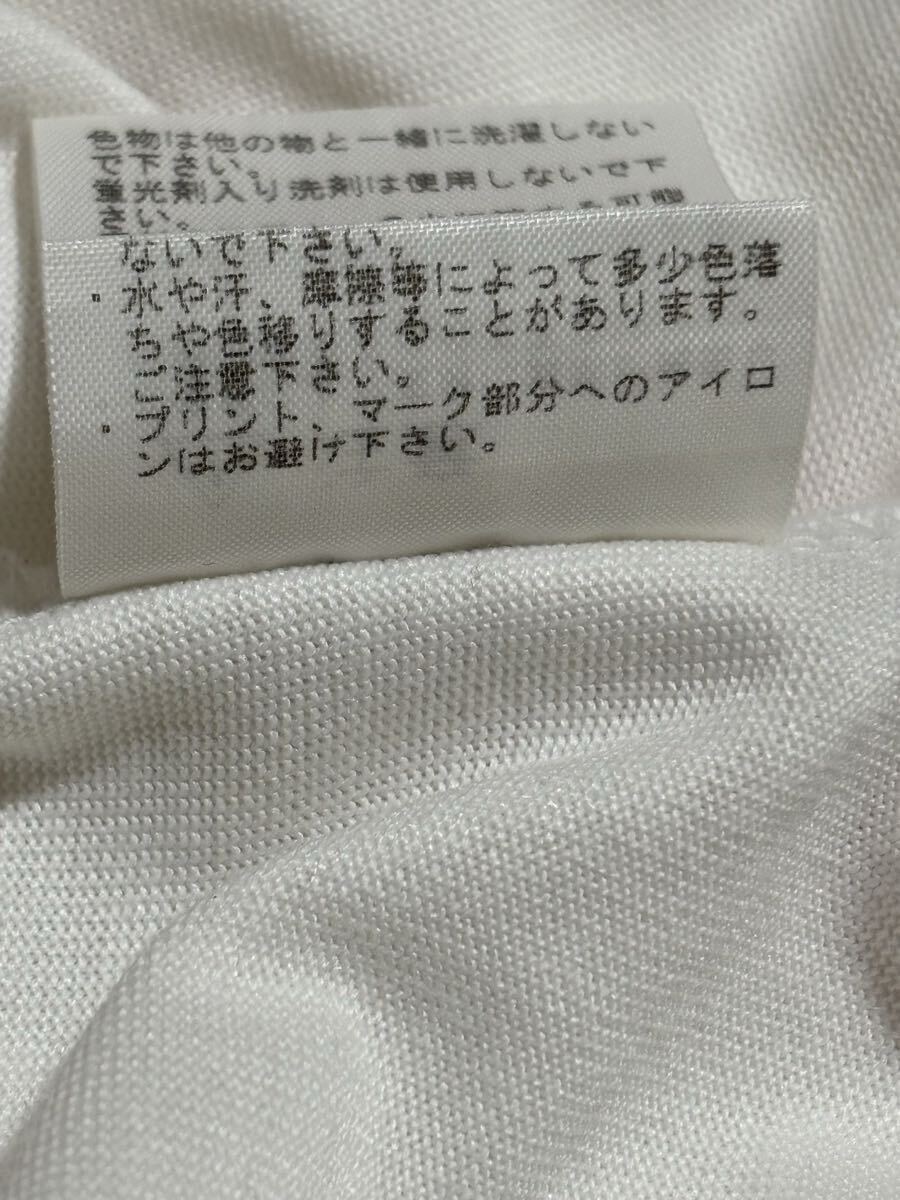 色物は他の物と一緒に洗濯しない
で下さい。
蛍光剤入り洗剤は使用しないで下
さい。
ないで下さい。
・水や汗、摩擦等によって多少色落
ちや色移りすることがあります。
ご注意下さい。
・プリント、マーク部分へのアイロ
ンはお避け下さい。